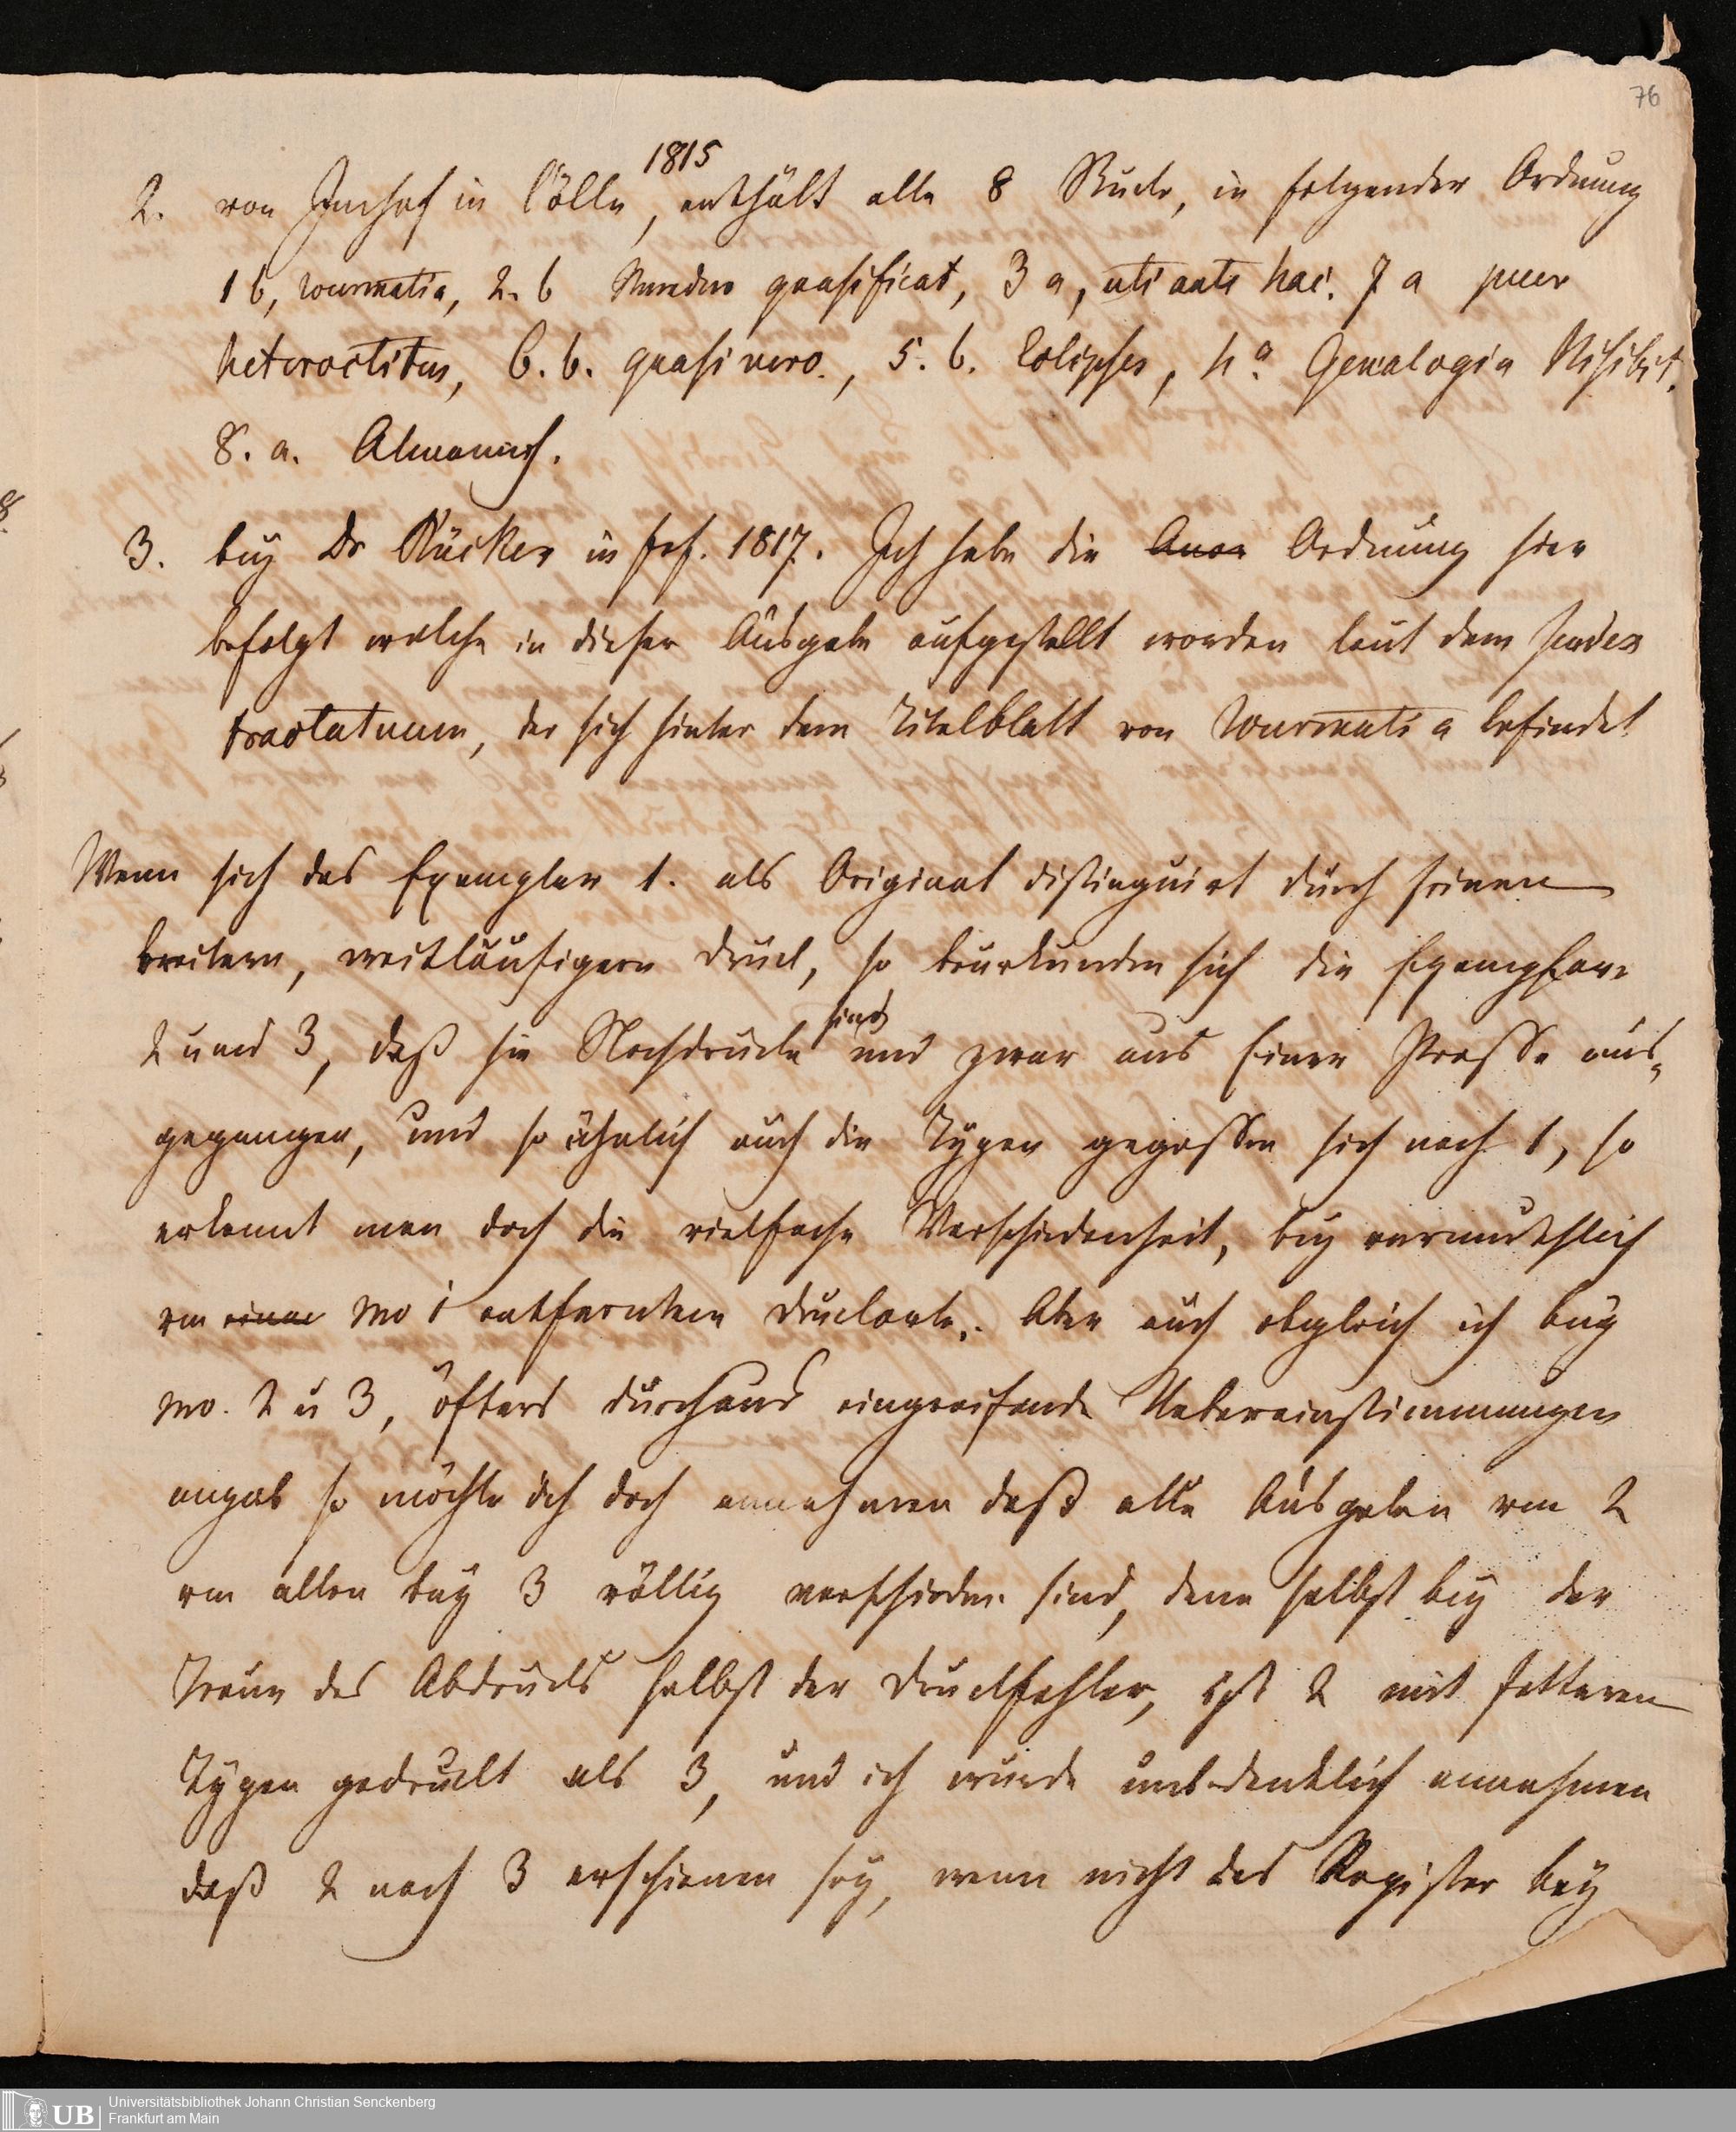 76
1815
2. von Imhof in Cölln, enthält alle 8 Stücke, in folgender Ordnung
1 b, wurmatia, 2. b Mundus quasificat, 3 a, uti ante hac. 7 a puer
heteroclitus, 6. b. quasi vero., 5. b. Eclipses, 4a. Genealogia Nisibit.
8. a. Almanach.
3. bey Dr Rücker in Frf. 1817. Ich habe die Anor Ordnung hier
befolgt welche in dieser Ausgabe aufgestellt worden laut dem Index
tractatuum, der sich hinter dem Titelblatt von Wurmatia befindet
Wenn sich das Exemplar 1. als Original distinguirt durch seinen
breitern, weitläufigern Druck, so beurkunden sich die Exemplare
sind
2 und 3, daß sie Nachdrucke und zwar aus Einer Presse aus-
gegangen, und so ähnlich auch die Typen gegossen sich nach 1, so
erkennt man doch die vielfache Verschiedenheit, bey vermuthlich
von einer No 1 entfernten Druckorte. Aber auch obgleich ich bey
No. 2 u 3, öfters durchaus eingreifende Uebereinstimmungen
angab so möchte ich doch annehmen daß alle Ausgaben von 2
von allen bey 3 völlig verschieden sind, denn selbst bey der
Treue des Abdrucks selbst der Druckfehler, ist 2 mit fetteren
Typen gedruckt als 3, und ich würde unbedenklich annehmen
daß 2 nach 3 erschienen sey, wenn nicht das Register bey
UB
Universitätsbibliothek Johann Christian Senckenberg
Frankfurt am Main